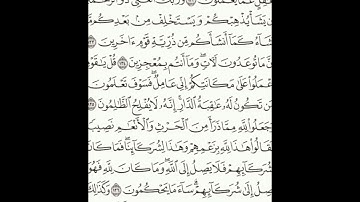 بِغَٰفِلٍ عَمَّا يَعْمَلُونَ ۝ وَرَبُّكَ ٱلْغَنِىُّ ذُو ٱلرَّحْمَةِ
إِن يَشَأْ يُذْهِبْكُمْ وَيَسْتَخْلِفْ مِنۢ بَعْدِكُم مَّا
يَشَآءُ كَمَآ أَنشَأَكُم مِّن ذُرِّيَّةِ قَوْمٍ ءَاخَرِينَ ۝١٣٣
إِنَّ مَا تُوعَدُونَ لَءَاتٍ وَمَآ أَنتُم بِمُعْجِزِينَ ۝١٣٤ قُلْ يَٰقَوْمِ
ٱعْمَلُوا۟ عَلَىٰ مَكَانَتِكُمْ إِنِّى عَامِلٌ فَسَوْفَ تَعْلَمُونَ
مَن تَكُونُ لَهُۥ عَٰقِبَةُ ٱلدَّارِ إِنَّهُۥ لَا يُفْلِحُ ٱلظَّٰلِمُونَ ۝
وَجَعَلُوا۟ لِلَّهِ مِمَّا ذَرَأَ مِنَ ٱلْحَرْثِ وَٱلْأَنْعَٰمِ نَصِيبًا
فَقَالُوا۟ هَٰذَا لِلَّهِ بِزَعْمِهِمْ وَهَٰذَا لِشُرَكَآئِنَا فَمَا كَانَ
لِشُرَكَآئِهِمْ فَلَا يَصِلُ إِلَى ٱللَّهِ وَمَا كَانَ لِلَّهِ فَهُوَ
يَصِلُ إِلَىٰ شُرَكَآئِهِمْ سَآءَ مَا يَحْكُمُونَ ۝١٣٦ وَكَذَٰلِكَ